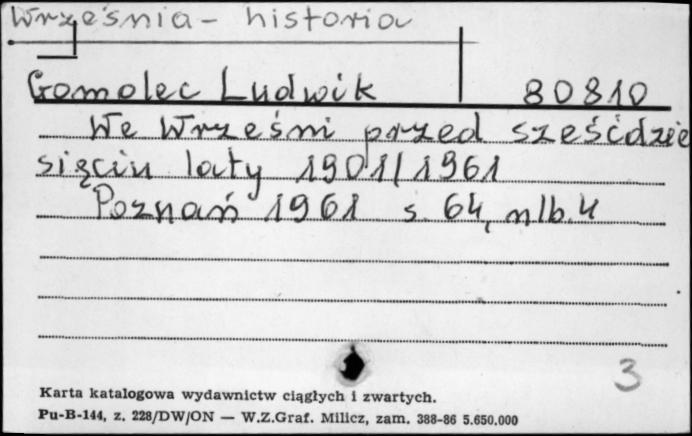 Września - historia
Gomolec Ludwik 80810
We Wrześni przed sześćdzie
sięciu laty 1901/1961
Poznań 1961 s. 64, nlb. 4
3
Karta katalogowa wydawnictw ciągłych i zwartych.
Pu-B-144, z. 228/DW/ON — W.Z.Graf. Milicz, zam. 388-86 5.650.000